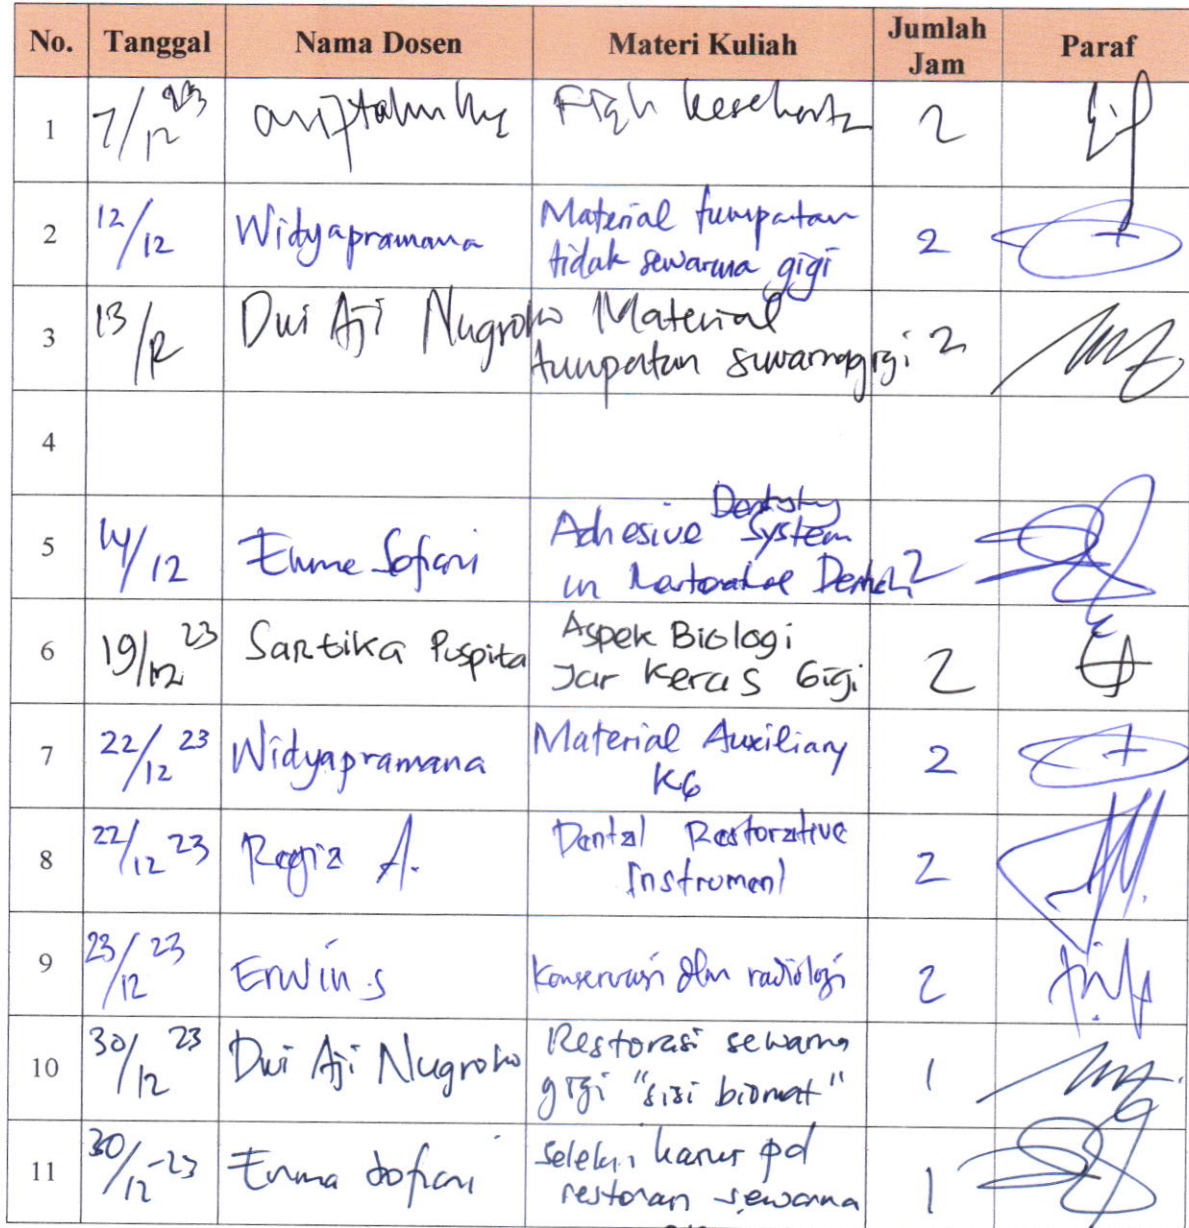 No. Tanggal Nama Dosen Materi Kuliah Jumlah Jam Paraf
1 7/12 23 Fiqh kesehatan 2
2 12/12 Widyapramana Material tumpatan
tidak sewarna gigi 2
3 13/12 Dwi Aji Nugroho Material
tumpatan sewarna gigi 2
4
5 14/12 Erma Sofiani Adhesive Dentistry System
in Dentch 2
6 19/12 23 Sartika Puspita Aspek Biologi
Jar Keras Gigi 2
7 22/12 23 Widyapramana Material Auxiliary
KG 2
8 22/12 23 Regia A. Dental Restorative
Instrument 2
9 23/12 23 Erwin S Konservasi dlm radiologi 2
10 30/12 23 Dwi Aji Nugroho Restorasi sewarna
gigi "sisi biomat" 1
11 30/12-23 Erma Sofiani pd
restorasi sewarna 1